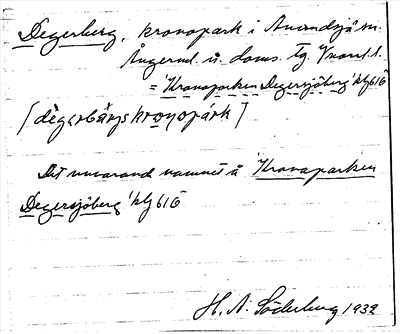 Degerberg, kronopark i Anundsjö sn.
Ångerml. s. doms. tg. Vnorrl. l.
= 'Kronoparken Degersjöberg' klg 616
[dègərbær̀gs kronopárk]
Det nuvarande namnet å 'Kronoparken
Degersjöberg' klg 616
H. A. Söderberg 1932